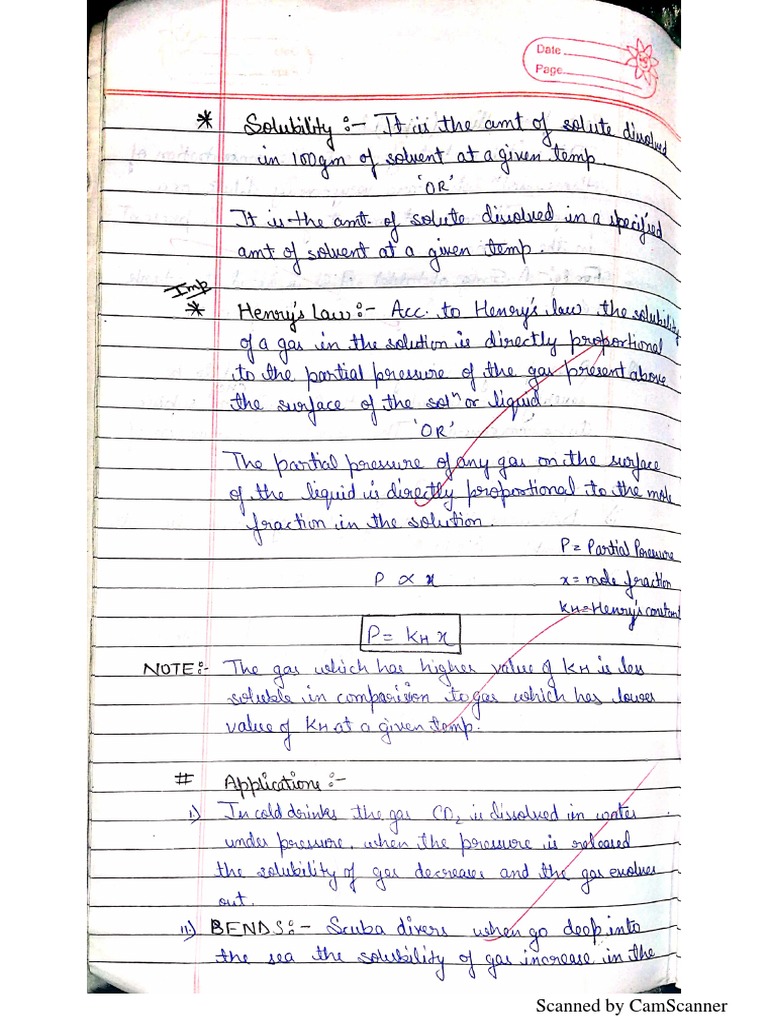 Date
Page
* Solubility :- It is the amt of solute dissolved
in 100gm of solvent at a given temp.
'OR'
It is the amt. of solute dissolved in a specified
amt of solvent at a given temp.
Imp
* Henry's Law :- Acc. to Henry's law the solubility
of a gas in the solution is directly proportional
to the partial pressure of the gas present above
the surface of the solⁿ or liquid.
'OR'
The partial pressure of any gas on the surface
of the liquid is directly proportional to the mole
fraction in the solution.
P = Partial Pressure
P ∝ x
x = mole fraction
KH = Henry's constant
P = KH x
NOTE :- The gas which has higher value of KH is less
soluble in comparision to gas which has lower
value of KH at a given temp.
# Applications :-
i.) In cold drinks the gas CO2 is dissolved in water
under pressure, when the pressure is released
the solubility of gas decreases and the gas evolves
out.
ii.) BENDS :- Scuba divers when go deep into
the sea the solubility of gas increase in the
Scanned by CamScanner